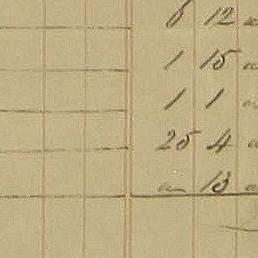 6 12
1 15
1 1
25 4
13